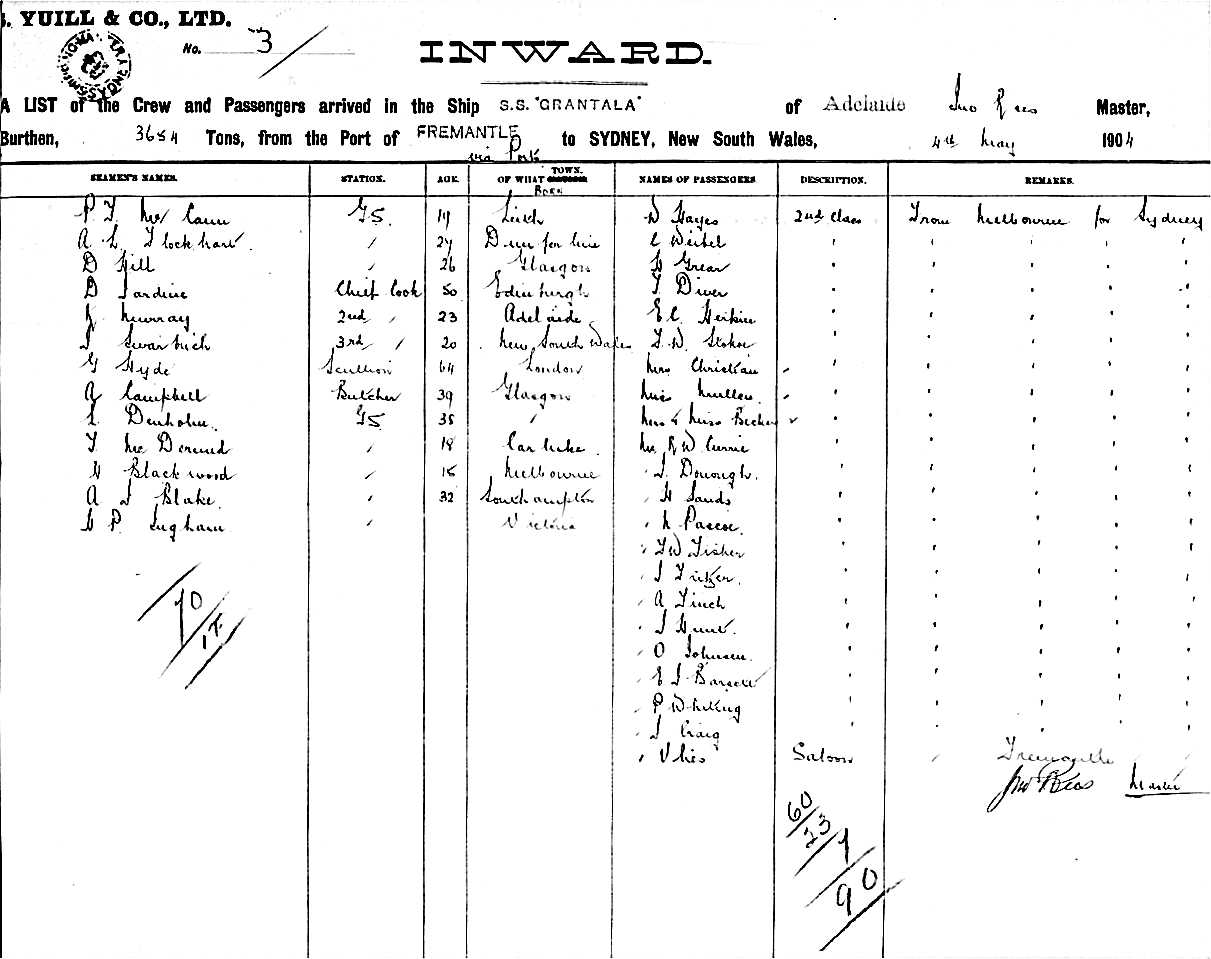 . YUILL & CO., LTD.
No. 3
INWARD.
A LIST of the Crew and Passengers arrived in the Ship S.S. "GRANTALA" of Adelaide Jno Rees Master,
Burthen, 3654 Tons, from the Port of FREMANTLE via Ports to SYDNEY, New South Wales, 4th May 1904
SEAMEN'S NAMES. STATION. AGE. OF WHAT TOWN. Born NAMES OF PASSENGERS DESCRIPTION. REMARKS.
P. J. McCann GS. 19 Leith W Hayes 2nd Class From Melbourne for Sydney
A. L. Flockhart. " 27 Dunfermline C Weibel " " " " "
D Hill " 26 Glasgow H Grear " " " " "
D Jardine Chief Cook 50 Edinburgh T Diver " " " " "
J. Murray 2nd " 23 Adelaide E C. " " " " "
J Swarbrick 3rd " 20 New South Wales F. W. Stokoe " " " " "
G Hyde Scullion 64 London Mrs Christian " " " " "
A Campbell Butcher 39 Glasgow Miss Mullen " " " " "
L. Denholm. GS 35 " Mrs & Miss Becher " " " " "
J McDermid " 18 Carluke. Mr R W Currie " " " " "
H Blackwood " 18 Melbourne " J. Donough. " " " " "
A J Blake. " 32 Southampton " H Sands " " " " "
H P. Ingham " Victoria " N Pascoe. " " " " "
" F W Fisher " " " " "
" J Fricker. " " " " "
" A Finch " " " " "
" J Hunt. " " " " "
" O Johnsen. " " " " "
" E J Barrett " " " " "
" P Whiting " " " " "
" J Craig " " " " "
" V Saloon " Fremantle
Jno Rees Master
60
23
7
90